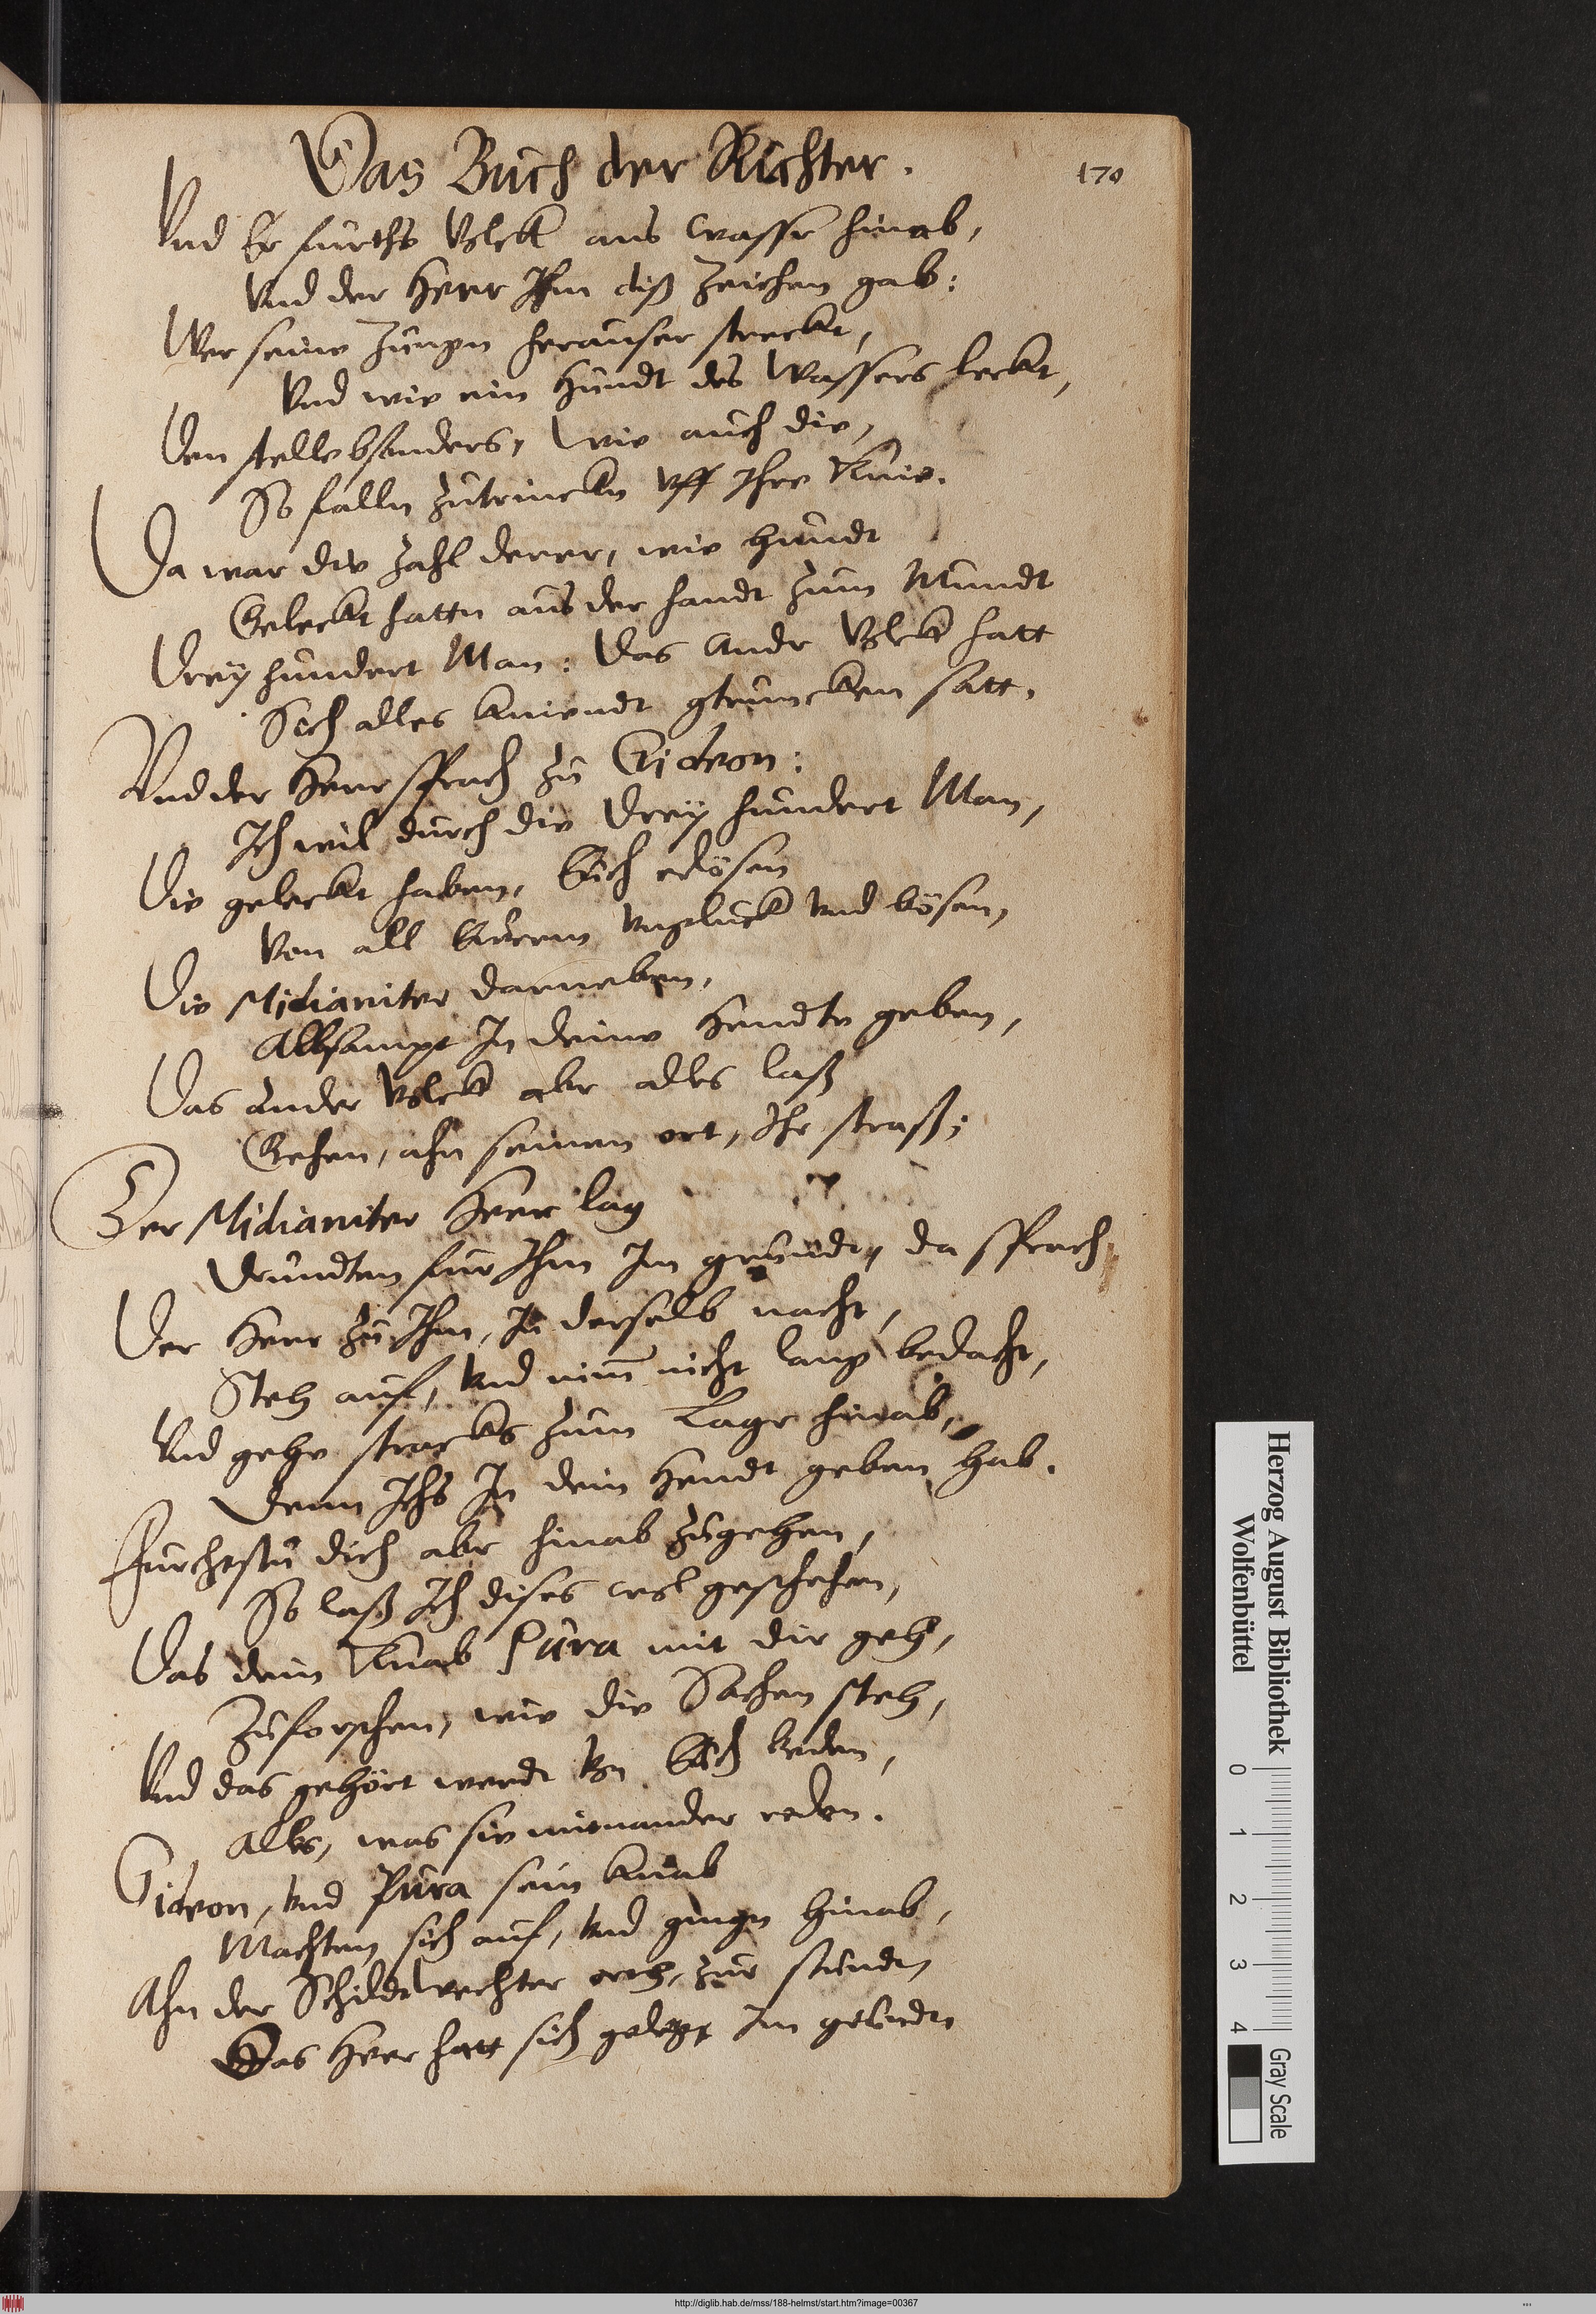 Das Buch der Richter.
170
Vnd Er furths Volck ans wasser hinab,
Vnd der Herr Ihm diß Zeichen gab:
Wer seine Zungn herauser streckt,
Vnd wie ein Hundt des Wassers leckt,
Den stelle bsonders, Wie auch die,
So falln zutrincken vff Ihre Knie.
Da war die Zahl derer, wie hundt
Geleckt hattn aus der handt zum Mundt
Drey hundert Man: Das Ander Volck hatt
Sich alles kniendt gtruncken satt.
Vnd der Herr sprach zu Gideon:
Ich wil durch die Drey hundert Man,
Die geleckt haben, Euch erlösen
Von all Eurem vnglück vnd bösen,
Die Midianiter darneben,
Allsampt In deine Hendte geben,
Das ander Volck aber alles laß
Gehen, ahn seinen ort, Ihr straß;
Der Midianiter Heer lag
Drundten fur Ihm Im grundt, da sprach
Der Herr zu Ihm, In derselb nacht,
Steh auf, vnd nim nicht lang bedacht,
Vnd gehe stracks zum Lager hinab,
Denn Ichs In dein Hendt geben hab.
Furchestu dich aber hinab zugehen,
So laß Ich dises wol geschehen,
Das dein Knab Pura mit dir geh,
Zuforschen, wie die Sachen steh,
Vnd das gehört werdt von Euch beden,
Alles, was sie mitnander reden.
Gideon, vnd Pura sein knab
Machten sich auf, vnd gingn hinab,
Ahn der Schildtwechter orth, zur stundt
Das Heer hatt sich gelegt Im grundt
Herzog August Bibliothek
Wolfenbüttel
0 1 2 3 4
Gray Scale
http://diglib.hab.de/mss/188-helmst/start.htm?image=00367